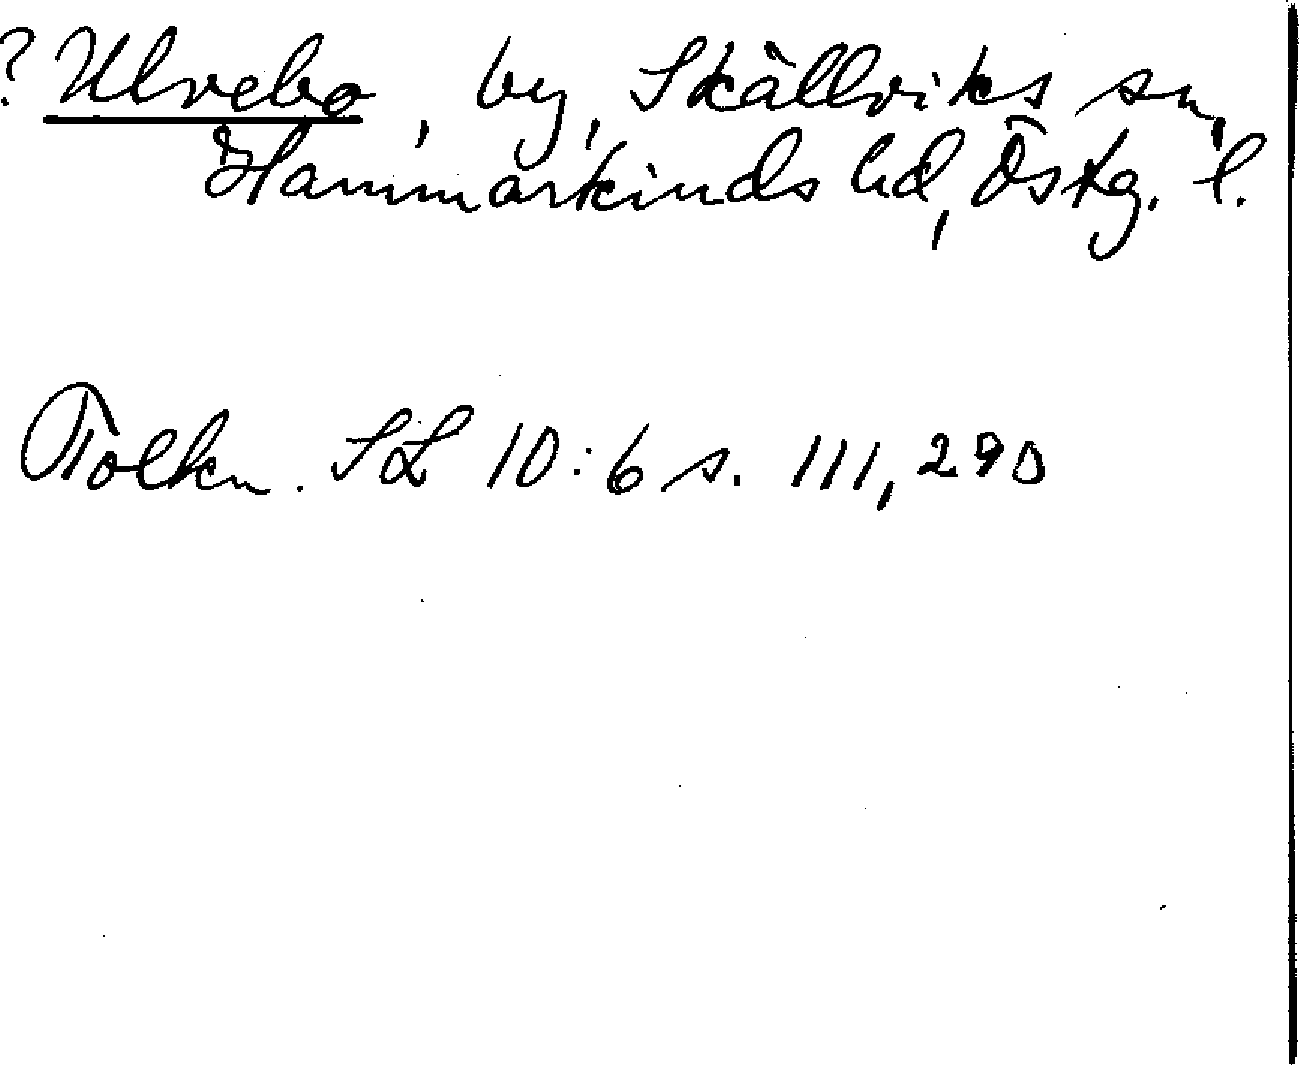 ? Ulvebo, by, Skällviks sn,
Hammarkinds hd, Östg. l.
Tolkn. SL 10:6 s. 111, 290